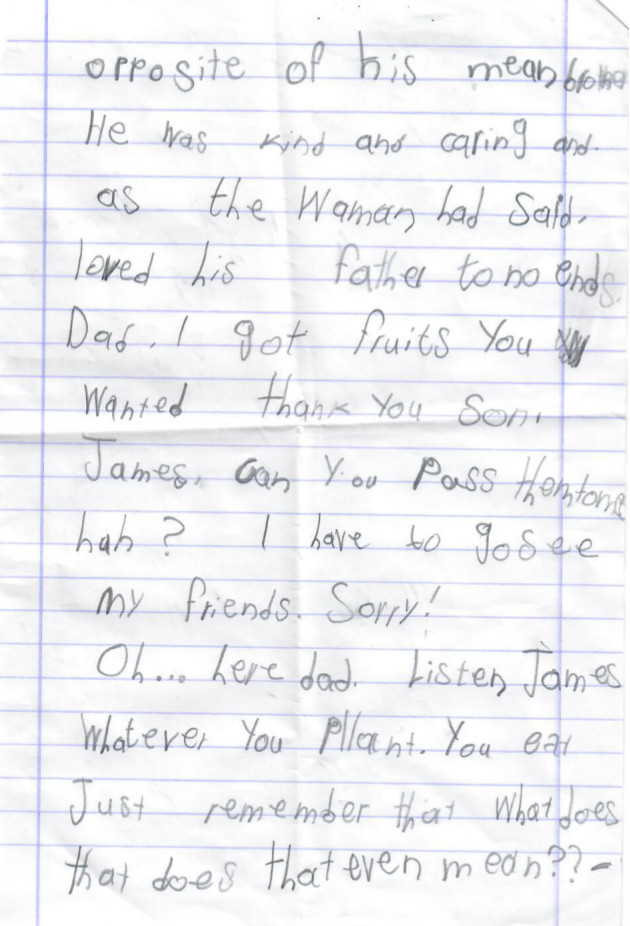 opposite of his mean brother
He was kind and caring and.
as the Waman had Said.
loved his father to no ends.
Dad. I got fruits You
Wanted thank You Son.
James. Can You Pass them to me
hah? I have to go See
my friends. Sorry!
Oh... here dad. Listen James
Whatever You Pllant. You eat
Just remember that What does
that does that even mean??-